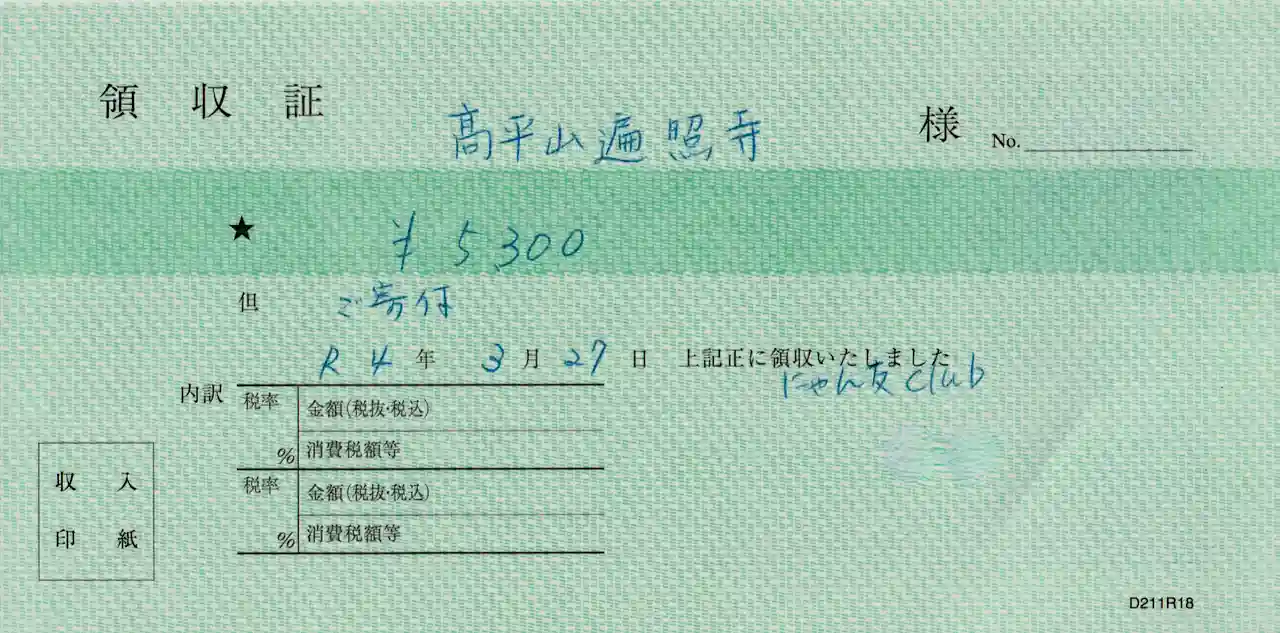 領収証 高平山遍照寺 様 No.
★ ¥5,300
但 ご寄付
R4年 3月27日 上記正に領収いたしました
にゃん友club
内訳 税率 % 金額(税抜・税込)
消費税額等
税率 % 金額(税抜・税込)
消費税額等
収入
印紙
D211R18